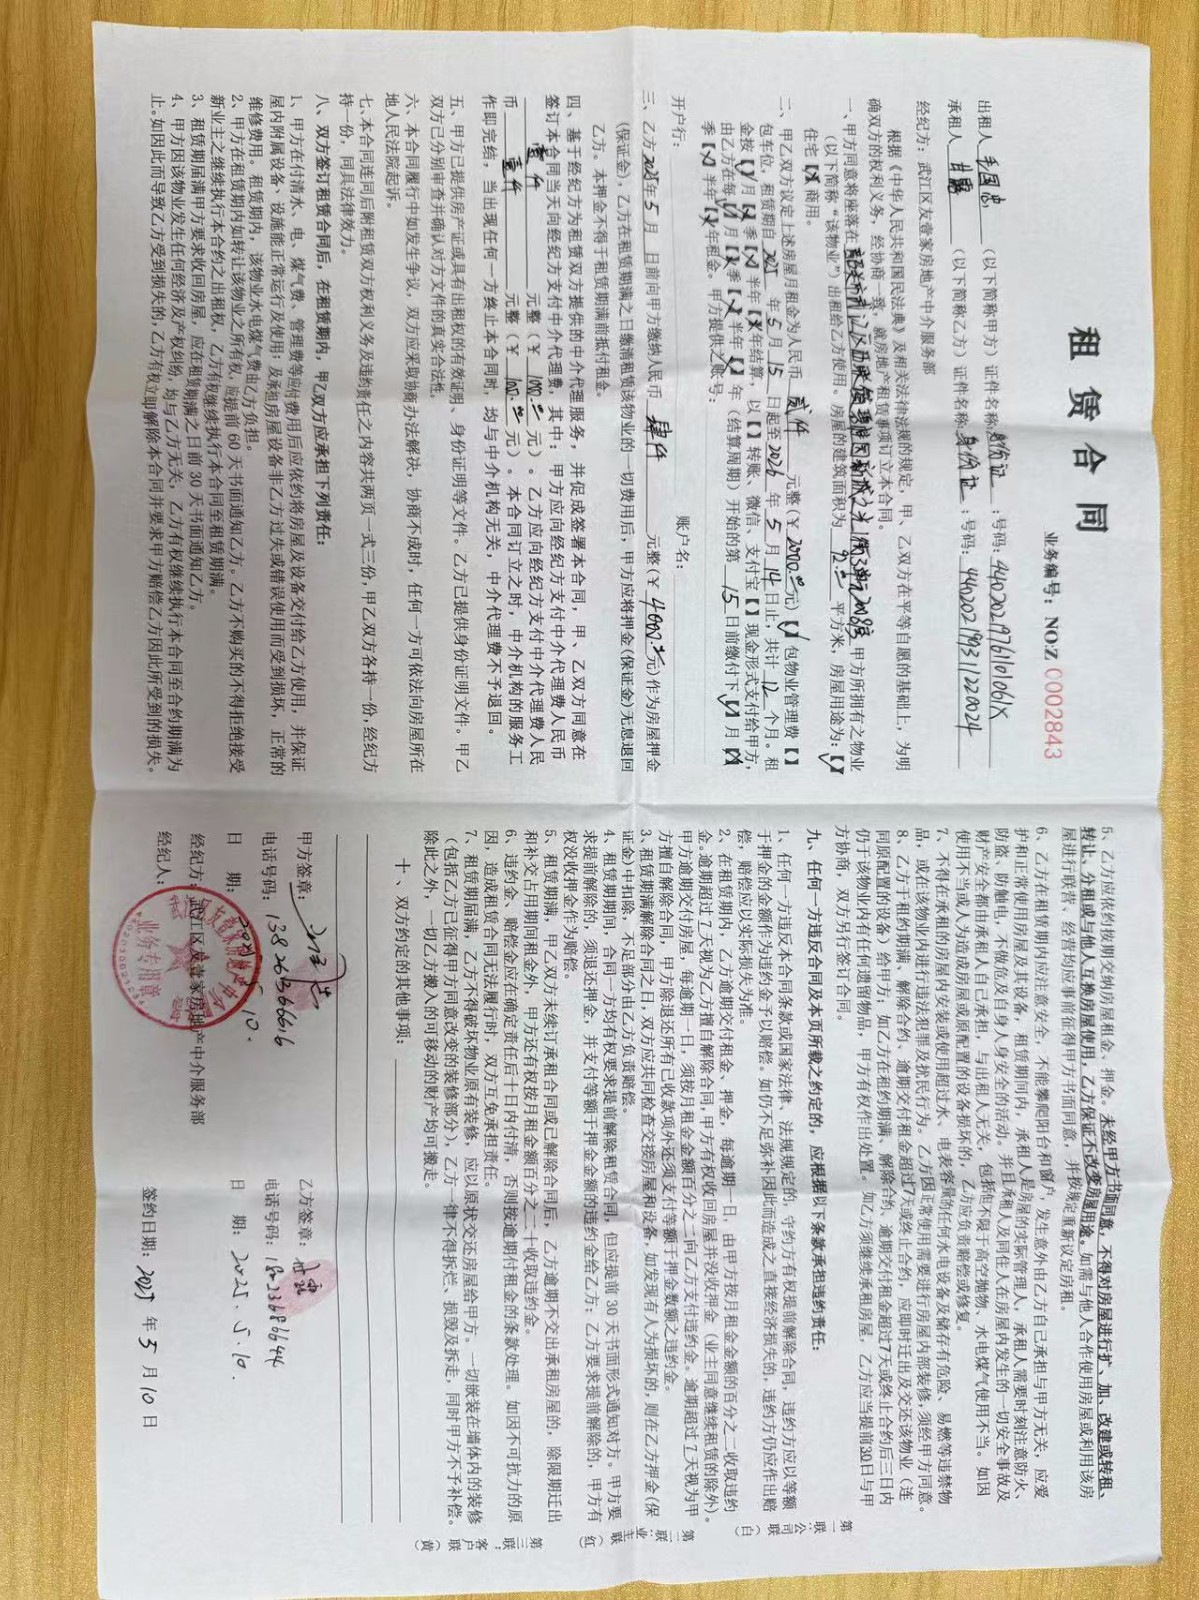 租赁合同
业务编号：NOZ 0002843
出租人 （以下简称甲方）证件名称：身份证：号码：44020219761010161X
承租人 （以下简称乙方）证件名称：身份证：号码：440202198311220024
经纪方：武江区友壹家房地产中介服务部
根据《中华人民共和国民法典》及相关法律法规的规定，甲、乙双方在平等自愿的基础上，为明
确双方的权利义务，经协商一致，就房地产租赁事项订立本合同。
一、甲方同意将座落在 甲方所拥有之物业
（以下简称“该物业”）出租给乙方使用。房屋的建筑面积为 92 平方米，房屋用途为：【】
住宅【】商用。
二、甲乙双方议定上述房屋月租金为人民币 贰仟 元整（￥2000.00元）【】包物业管理费【】
包车位，租赁期自 2025 年 5 月 15 日起至 2026 年 5 月 14 日止，共计 12 个月。租
金按【】月【】季【】半年【】年结算，以【】转账、微信、支付宝【】现金形式支付给甲方，
由乙方在每【】月【】季【】半年【】年（结算周期）开始的第 15 日前缴付下【】月【】
季【】半年【】年租金。甲方提供之账号：
开户行： 账户名：
三、乙方 2025 年 5 月 日前向甲方缴纳人民币 肆仟 元整（￥4000.00元）作为房屋押金
（保证金），乙方在租赁期满之日缴清租赁该物业的一切费用后，甲方应将押金（保证金）无息退回
乙方。本押金不得于租赁期满前抵付租金。
四、基于经纪方为租赁双方提供的中介代理服务，并促成签署本合同，甲、乙双方同意在
签订本合同当天向经纪方支付中介代理费，其中：甲方应向经纪方支付中介代理费人民币
壹仟 元整（￥1000.00元）。乙方应向经纪方支付中介代理费人民
币 壹仟 元整（￥1000.00元）。本合同订立之时，中介机构的服务工
作即完结，当出现任何一方终止本合同时，均与中介机构无关，中介代理费不予退回。
五、甲方已提供房产证或具有出租权的有效证明、身份证明等文件。乙方已提供身份证明文件。甲乙
双方已分别审查并确认对方文件的真实合法性。
六、本合同履行中如发生争议，双方应采取协商办法解决，协商不成时，任何一方可依法向房屋所在
地人民法院起诉。
七、本合同连同后附租赁双方权利义务及违约责任之内容共两页一式三份，甲乙双方各持一份，经纪方
持一份，同具法律效力。
八、双方签订租赁合同后，在租赁期内，甲乙双方应承担下列责任：
1、甲方在付清水、电、煤气费、管理费等应付费用后应依约将房屋及设备交付给乙方使用，并保证
屋内附属设备、设施能正常运行及使用；及承担房屋设备非乙方过失或错误使用而受到损坏，正常的
维修费用。租赁期内，该物业水电煤气费由乙方负担。
2、甲方在租赁期内如转让该物业之所有权，应提前 60 天书面通知乙方。乙方不购买的不得拒绝接受
新业主之继续执行本合约之出租权，乙方有权继续执行本合同至租赁期满。
3、租赁期届满甲方要求收回房屋，应在租赁期满之日前 30 天书面通知乙方。
4、甲方因该物业发生任何经济及产权纠纷，均与乙方无关，乙方有权继续执行本合同至合约期满为
止。如因此而导致乙方受到损失的，乙方有权立即解除本合同并要求甲方赔偿乙方因此所受到的损失。
5、乙方应依约按期交纳房屋租金、押金。未经甲方书面同意，不得对房屋进行扩、加、改建或转租、
转让、分租或与他人互换房屋使用，乙方保证不改变房屋用途。如需与他人合作使用房屋或利用该房
屋进行联营、经营均应事前征得甲方书面同意，并按规定重新议定房租。
6、乙方在租赁期内应注意安全，不能攀爬阳台和窗户，发生意外由乙方自己承担与甲方无关，应爱
护和正常使用房屋及其设备，租赁期间内，承租人是房屋的实际管理人，承租人需要时刻注意防火、
防盗、防触电，不做危及自身人身安全的活动。并且承租人及同住人在房屋内发生的一切安全事故及
财产安全都由承租人自己承担，与出租人无关，包括但不限于高空抛物、水电煤气使用不当。如因
使用不当或人为造成房屋或原配置的设备损坏的，乙方应负责赔偿或修复。
7、不得在承租的房屋内安装或使用超过水、电表容量的任何水电设备及储存有危险、易燃等违禁物
品，或在该物业内进行违法犯罪及扰民行为。乙方因正常使用需要进行房屋内部装修，须经甲方同意。
8、乙方于租约期满、解除合约、逾期交付租金超过7天或终止合约，应即时迁出及交还该物业（连
同原配置的设备）给甲方；如乙方在租约期满、解除合约、逾期交付租金超过7天或终止合约后三日内
仍于该物业内有任何遗留物品，甲方有权作出处置。如乙方须继续承租房屋，乙方应当提前30日与甲
方协商，双方另行签订合同。
九、任何一方违反合同及本页所载之约定的，应根据以下条款承担违约责任：
1、任何一方违反本合同条款或国家法律、法规规定的，守约方有权提前解除合同，违约方应以等额
于押金的金额作为违约金予以赔偿。如仍不足弥补因此而造成之直接经济损失的，违约方仍应作出赔
偿，赔偿应以实际损失为准。
2、在租赁期内，乙方逾期交付租金、押金，每逾期一日，由甲方按月租金金额的百分之二收取违约
金。逾期超过7天视为乙方擅自解除合同，甲方有权收回房屋并没收押金（业主同意继续租赁的除外）。
甲方逾期交付房屋，每逾期一日，须按月租金金额百分之二向乙方支付违约金。逾期超过7天视为甲
方擅自解除合同，甲方除退还所有已收款项外还须支付等额于押金数额之违约金。
3、租赁期满解除合同之日，双方应共同检查交接房屋和设备，如发现有人为损坏的，则在乙方押金（保
证金）中扣除，不足部分由乙方负责赔偿。
4、租赁期期间，合同一方均有权要求提前解除租赁合同，但应提前 30 天书面形式通知对方。甲方要
求提前解除的，须退还押金，并支付等额于押金金额的违约金给乙方；乙方要求提前解除的，甲方有
权没收押金作为赔偿。
5、租赁期满，甲乙双方未续订承租合同或已解除合同后，乙方逾期不交出承租房屋的，除限期迁出
和补交占用期间租金外，甲方还有权按月租金额百分之二十收取违约金。
6、违约金、赔偿金应在确定责任后十日内付清，否则按逾期付租金的条款处理。如因不可抗力的原
因，造成租赁合同无法履行时，双方互免承担责任。
7、租赁期届满，乙方不得破坏物业原有装修，应以原状交还房屋给甲方。一切嵌装在墙体内的装修
（包括乙方已征得甲方同意改变的装修部分），乙方一律不得拆烂、损毁及拆走，同时甲方不予补偿。
除此之外，一切乙方搬入的可移动的财产均可搬走。
十、双方约定的其他事项：
甲方签章： 乙方签章：
电话号码：13826366616 电话号码：18023686644
日 期：2025.5.10. 日 期：2025.5.10.
经纪方：武江区友壹家房地产中介服务部
经纪人： 签约日期：2025年5月10日
业务专用章
第一联：公司联（白）
第二联：业主联（红）
第三联：客户联（黄）